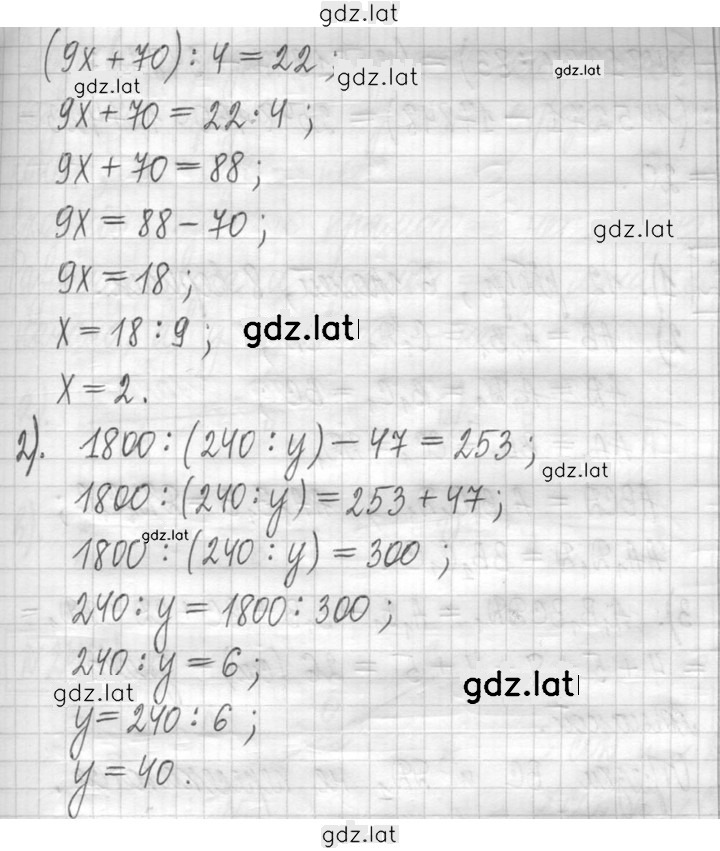 gdz.lat
(9x + 70) : 4 = 22 ;
gdz.lat
gdz.lat
gdz.lat
9x + 70 = 22 · 4 ;
9x + 70 = 88 ;
9x = 88 - 70 ;
gdz.lat
9x = 18 ;
x = 18 : 9 ;
gdz.lat
x = 2 .
2). 1800 : (240 : y) - 47 = 253 ;
gdz.lat
1800 : (240 : y) = 253 + 47 ;
gdz.lat
1800 : (240 : y) = 300 ;
240 : y = 1800 : 300 ;
240 : y = 6 ;
gdz.lat
gdz.lat
y = 240 : 6 ;
y = 40 .
gdz.lat